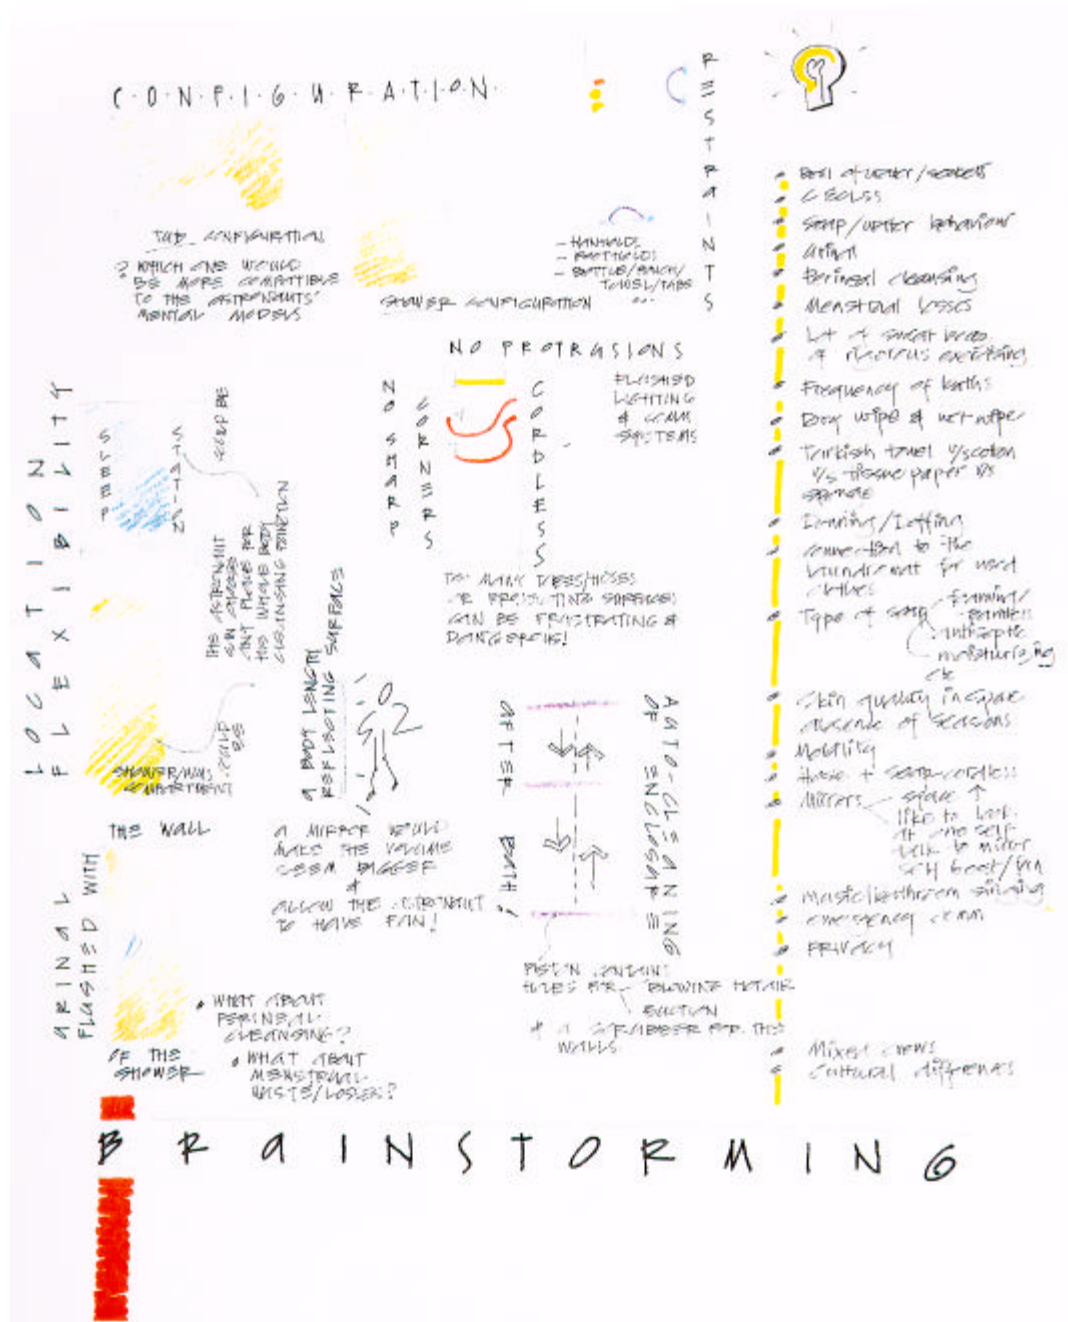 CONFIGURATION
RESTRAINTS
TUB CONFIGURATION
? WHICH ONE WOULD
BE MORE COMPATIBLE
TO THE ASTRONAUTS'
MENTAL MODELS
SHOWER CONFIGURATION
- HANDHOLDS
- FOOTHOLDS
- BOTTLE/POUCH/
TOWEL/TABS
NO PROTRUSIONS
NO SHARP
CORNERS
CORDLESS
FLUSHED
LIGHTING
& COMM
SYSTEMS
TOO MANY TUBES/HOSES
OR PROJECTING SURFACES
CAN BE FRUSTRATING &
DANGEROUS!
LOCATION
FLEXIBILITY
SLEEP
STATION
COULD BE
THE ASTRONAUT
CAN CHOOSE
ANY PLACE FOR
HIS WHOLE BODY
CLEANSING FUNCTION
COULD
BE
SHOWER/
COMPARTMENT
A BODY LENGTH
REFLECTING SURFACE
A MIRROR WOULD
MAKE THE VOLUME
SEEM BIGGER
&
ALLOW THE ASTRONAUT
TO HAVE FUN!
AUTO-CLEANING
OF ENCLOSURE
AFTER BATH!
PISTON CONTAINS
HOLES FOR BLOWING HOT AIR
SUCTION
& A SCRUBBER FOR THE
WALLS
URINAL
FLUSHED WITH
THE WALL
OF THE
SHOWER
• WHAT ABOUT
PERINEAL
CLEANSING?
• WHAT ABOUT
MENSTRUAL
WASTE/LOSSES?
Soap/water behaviour
Urinal
Perineal cleansing
Menstrual losses
Lot of sweat
of rigorous exercising
Frequency of baths
Dry wipe & wet wipe
Turkish towel v/s cotton
v/s tissue paper v/s
sponge
Donning/Doffing
connection to the
laundromat for used
clothes
Type of soap foaming/
foamless
antiseptic
moisturizing
etc
Skin quality in space
absence of seasons
Mobility
Hose + soap cordless
Mirrors space ↑
like to look
at one self
talk to mirror
self boost/fun
Music/bathroom singing
emergency comm
PRIVACY
Mixed crews
Cultural differences
BRAINSTORMING